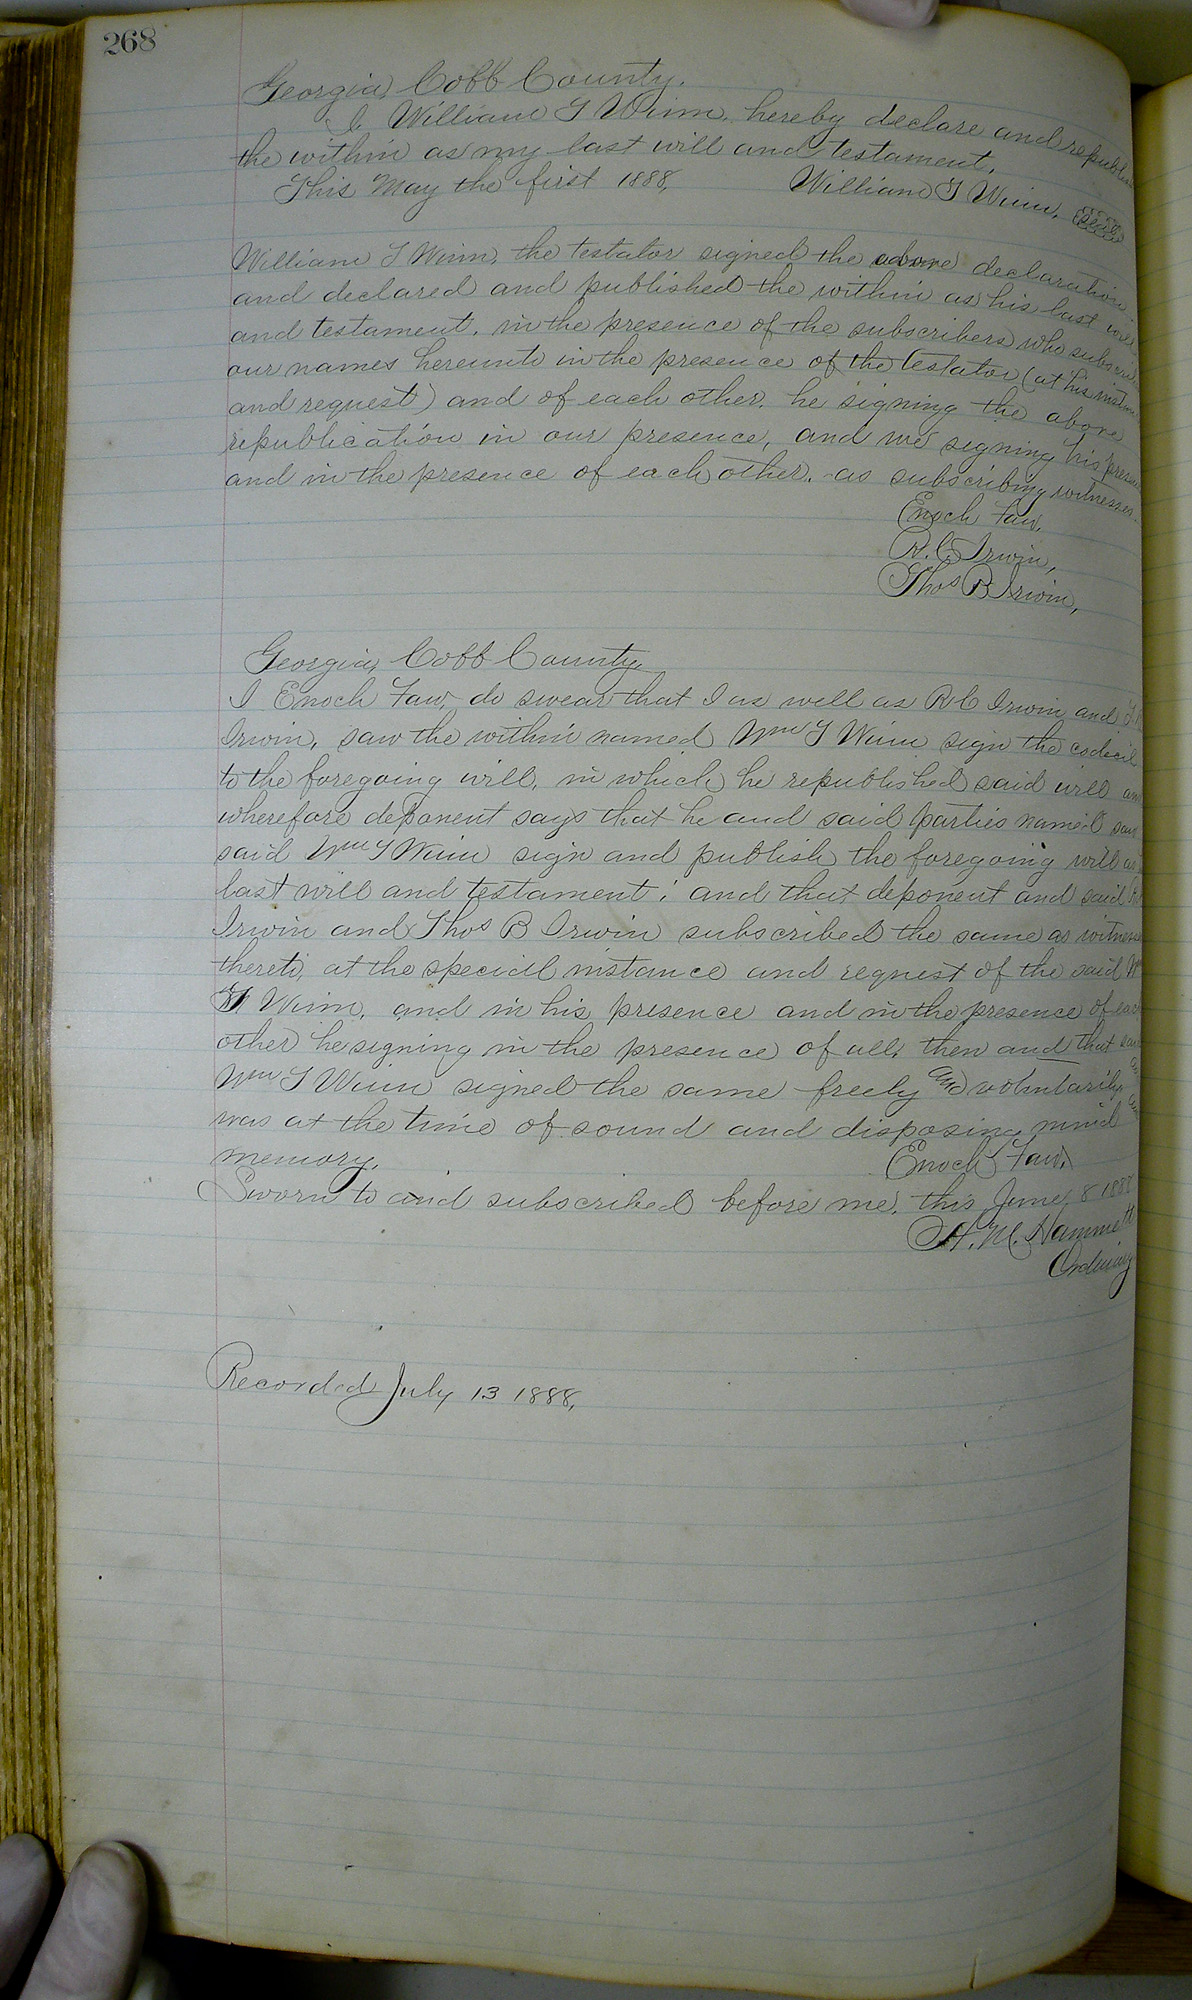 268
Georgia, Cobb County.
I, William T Winn, hereby declare and republish
the within as my last will and testament.
This May the first 1888, William T Winn, Seal
William T Winn, the testator signed the above declaration
and declared and published the within as his last will
and testament, in the presence of the subscribers who subscribe
our names hereunto in the presence of the testator (at his
and request) and of each other, he signing the above
republication in our presence, and we signing his
and in the presence of each other, as subscribing witnesses.
Enoch Faw,
R. C. Irwin,
Thos B Irwin,
Georgia, Cobb County,
I Enoch Faw, do swear that I as well as R C Irwin and T
Irwin, saw the within named Wm T Winn sign the codicil
to the foregoing will, in which he republished said will
wherefore deponent says that he and said parties named saw
said Wm T Winn sign and publish the foregoing will as
last will and testament; and that deponent and said
Irwin and Thos B Irwin subscribed the same as
thereto, at the special instance and request of the said Wm
T Winn, and in his presence and in the presence of each
other he signing in the presence of all, then and that
Wm T Winn signed the same freely and voluntarily, and
was at the time of sound and disposing mind and
memory. Enoch Faw.
Sworn to and subscribed before me, this June 8 1888
H. M. Hammett
Ordinary
Recorded July 13 1888,